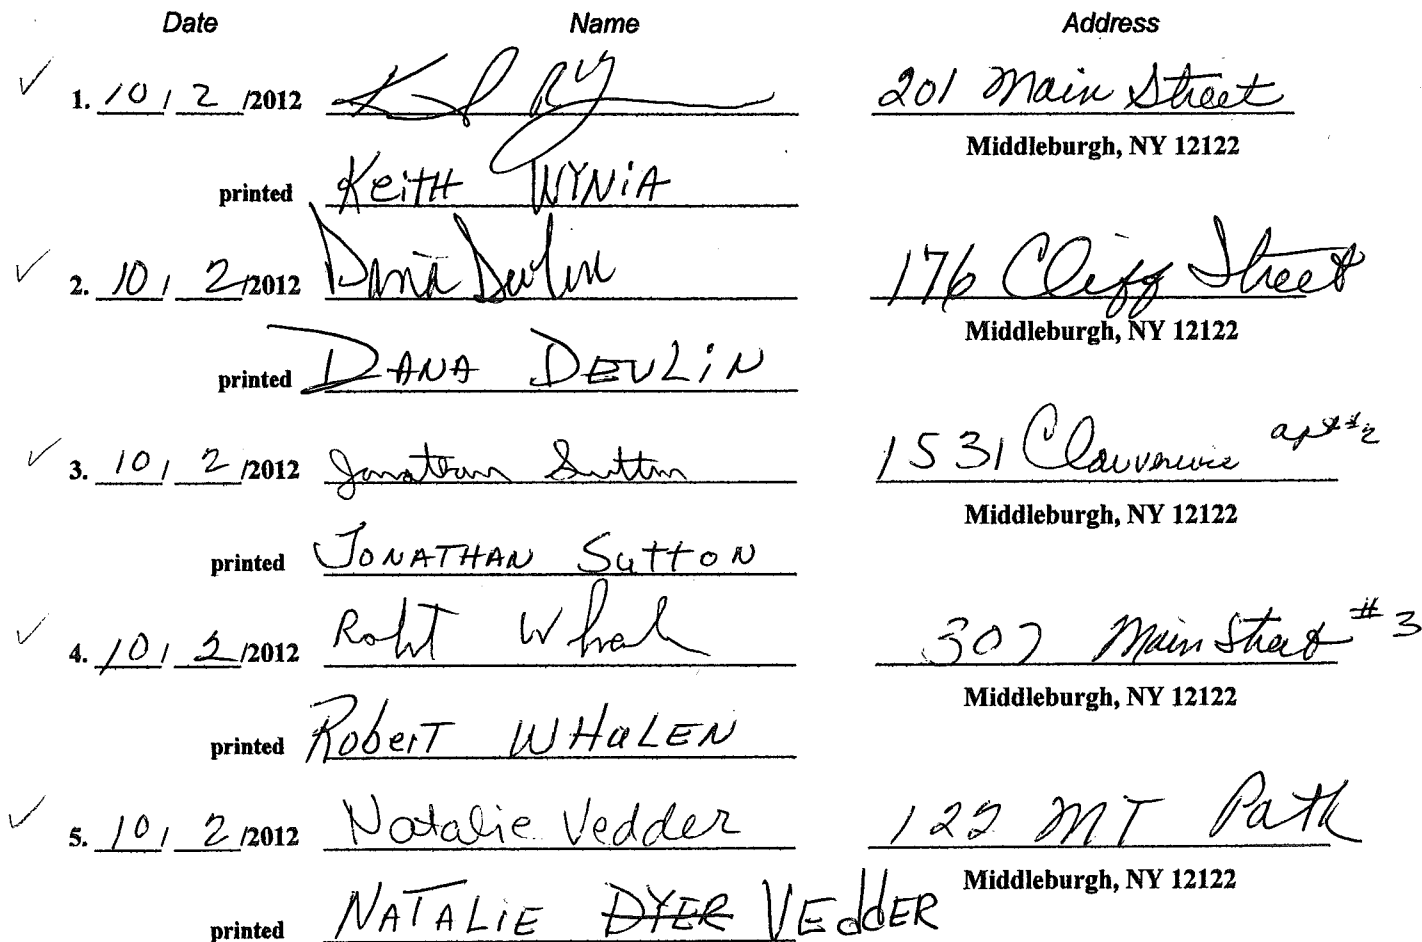 Date Name Address
✓ 1. 10 / 2 /2012 201 Main Street
Middleburgh, NY 12122
printed Keith WYNiA
✓ 2. 10 / 2 /2012 Dana Devlin 176 Cliff Street
Middleburgh, NY 12122
printed DANA DEVLiN
✓ 3. 10 / 2 /2012 Jonathan Sutton 1531 apt #2
Middleburgh, NY 12122
printed JONATHAN SuttoN
✓ 4. 10 / 2 /2012 Robt Whal 307 Main Street #3
Middleburgh, NY 12122
printed RoberT WHaLEN
✓ 5. 10 / 2 /2012 Natalie Vedder 122 MT Path
Middleburgh, NY 12122
printed NATALiE DYER VEddER